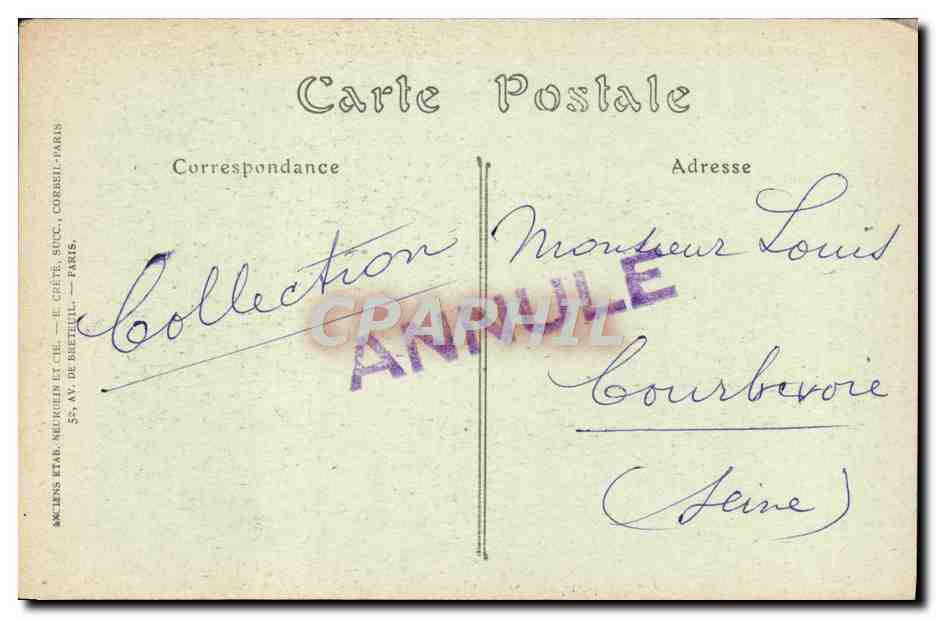 Carte Postale
Correspondance
Adresse
ANCIENS ETAB. NEURDEIN ET CIE. — E. CRÉTÉ, SUCC., CORBEIL-PARIS
52, AV. DE BRETEUIL. — PARIS.
Collection
Monsieur Louis
ANNULE
CPARHIL
Courbevoie
(Seine)